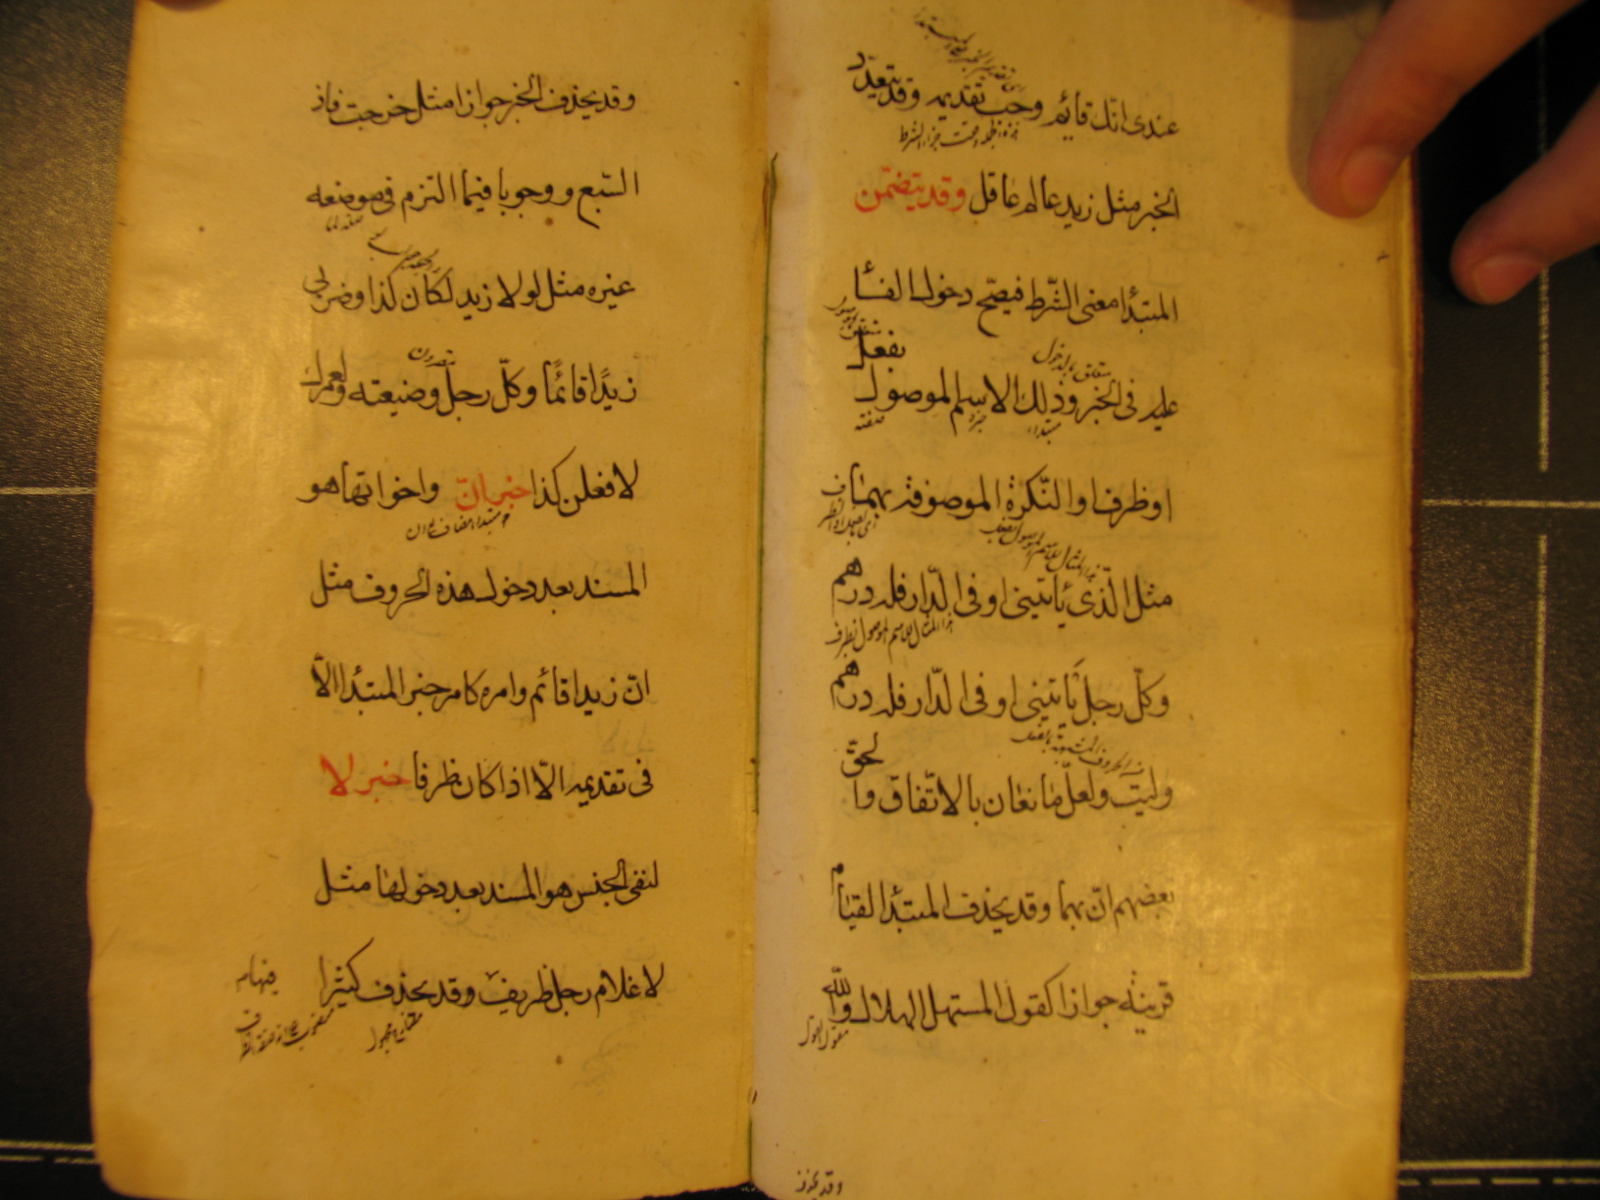 عندى انك قائم وجب تقديمه وقد يتعدّد
الخبر مثل زيد عالم عاقل وقد يتضمن
المبتدأ معنى الشّرط فيصحّ دخول الفاء
عليه فى الخبر وذلك الاسم الموصول بفعل
متعلق بالدخول
مبتداء
خبره
صفته
او ظرف او النّكرة الموصوفة بهما
مثل الّذى يأتينى او فى الدّار فله درهم
هذا المثال للاسم الموصول بظرف
وكلّ رجل يأتينى او فى الدّار فله درهم
وليت ولعلّ مانعان بالاتّفاق والحقّ
بعضهم انّ بهما وقد يحذف المبتدأ لقيام
قرينة جوازا كقول المستهل الهلال واللّه
مقول القول
وقد يحذف
وقد يحذف الخبر جوازا مثل خرجت فاذا
السّبع ووجوبا فيما التزم فى موضعه
غيره مثل لولا زيد لكان كذا وضربى
زيدًا قائمًا وكلّ رجل وضيعته ولعمرك
مقرون
لافعلن كذا خبر انّ واخواتها هو
المسند بعد دخول هذه الحروف مثل
انّ زيدا قائم وامره كامر خبر المبتدأ الّا
فى تقديمه الّا اذا كان ظرفا خبر لا
لنفى الجنس هو المسند بعد دخولها مثل
لا غلام رجل ظريف وقد يحذف كثيرا
فيها م